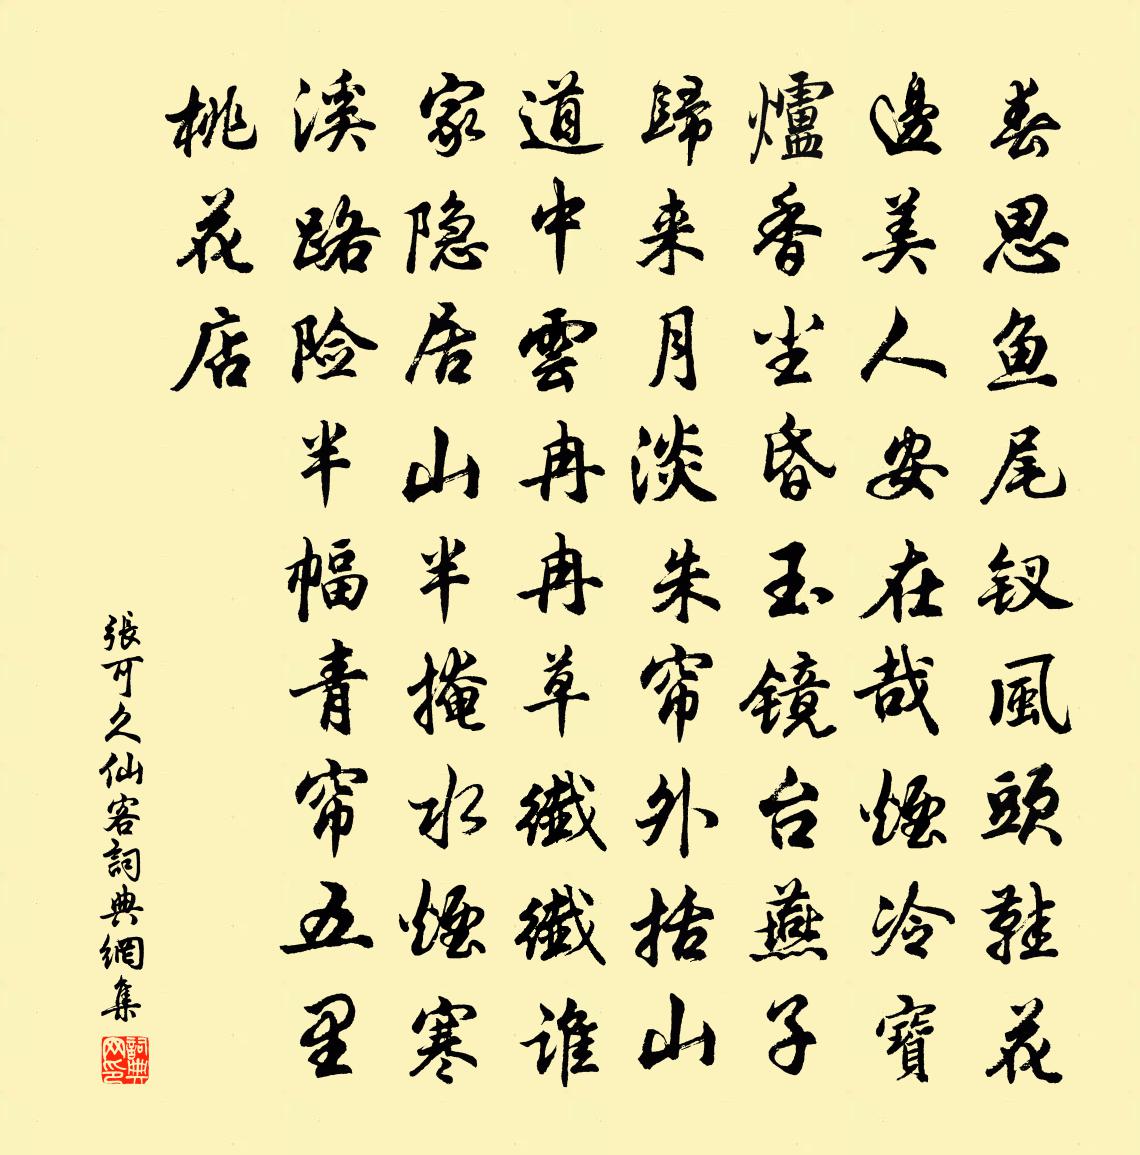 春思鱼尾钗風頭鞋花
邊美人安在哉煙冷寶
爐香坐昏玉镜台燕子
歸来月淡朱帘外括山
道中雲冉冉草纖纖谁
家隐居山半掩水煙寒
溪路险半幅青帘五里
桃花店
張可久仙客詞典網集
詞典网印